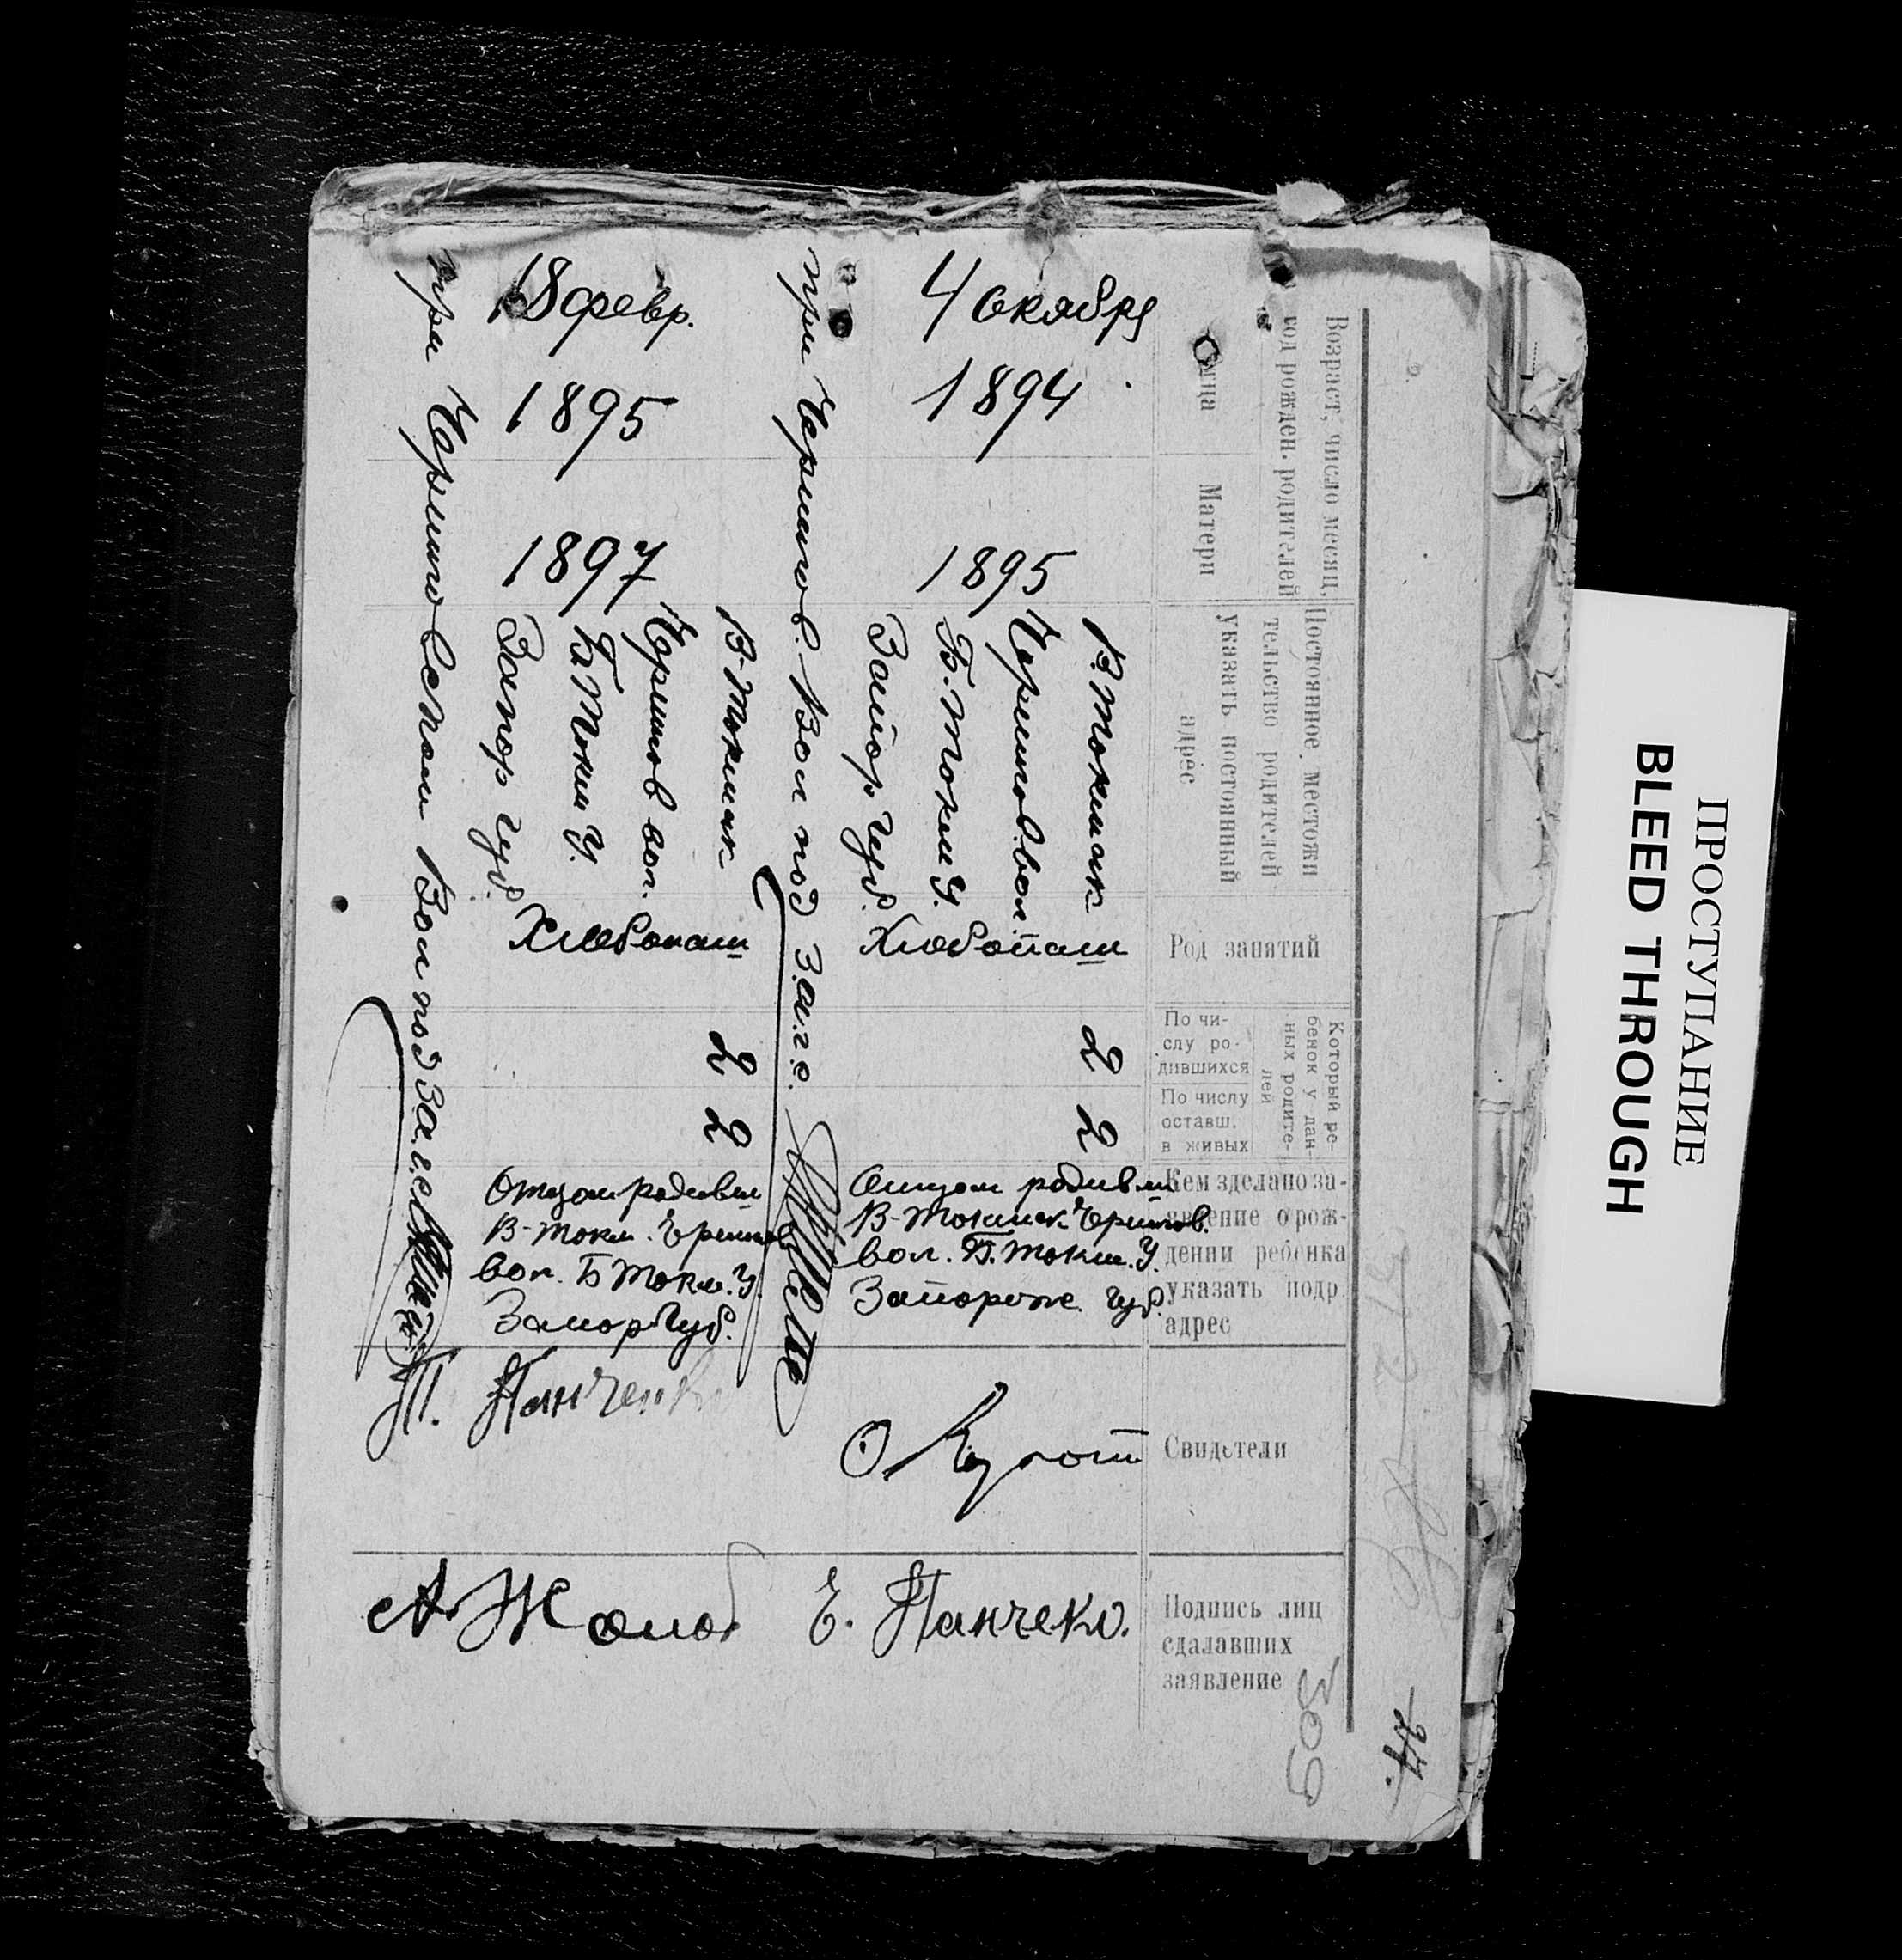 Возраст, число месяц,
год рожден. родителей
Отца
Матери
Постоянное местожи
тельство родителей
указать постоянный
адрес
Род занятий
Который ре-
бенок у дан-
ных родите-
лей
По чи-
слу ро-
дившихся
По числу
оставш.
в живых
Кем зделано за-
явление о рож-
дении ребенка
указать подр.
адрес
Свидетели
Подпись лиц
сдалавших
заявление
309
24.
4 окября
1894
1895
В. Токмак
Чернигов. вол.
Б. Токм У.
Запор Губ.
Хлебопаш
2
2
Отцом родивш
В-Токмак Черигов.
вол. Б. Токм. У.
Запорож. Губ.
Е. Панчеко.
при Чернигов. Вол под З.а.г.с.
18 февр.
1895
1897
В-Токмак
Чернигов вол.
Б Токм У.
Запор Губ.
Хлебопаш
2
2
Отцом родивш
В-Токм. Чернигов
вол. Б Токм. У.
Запор Губ.
Т. Панченко
при Черниговском Вол под За.г.с.
ПРОСТУПАНИЕ
BLEED THROUGH